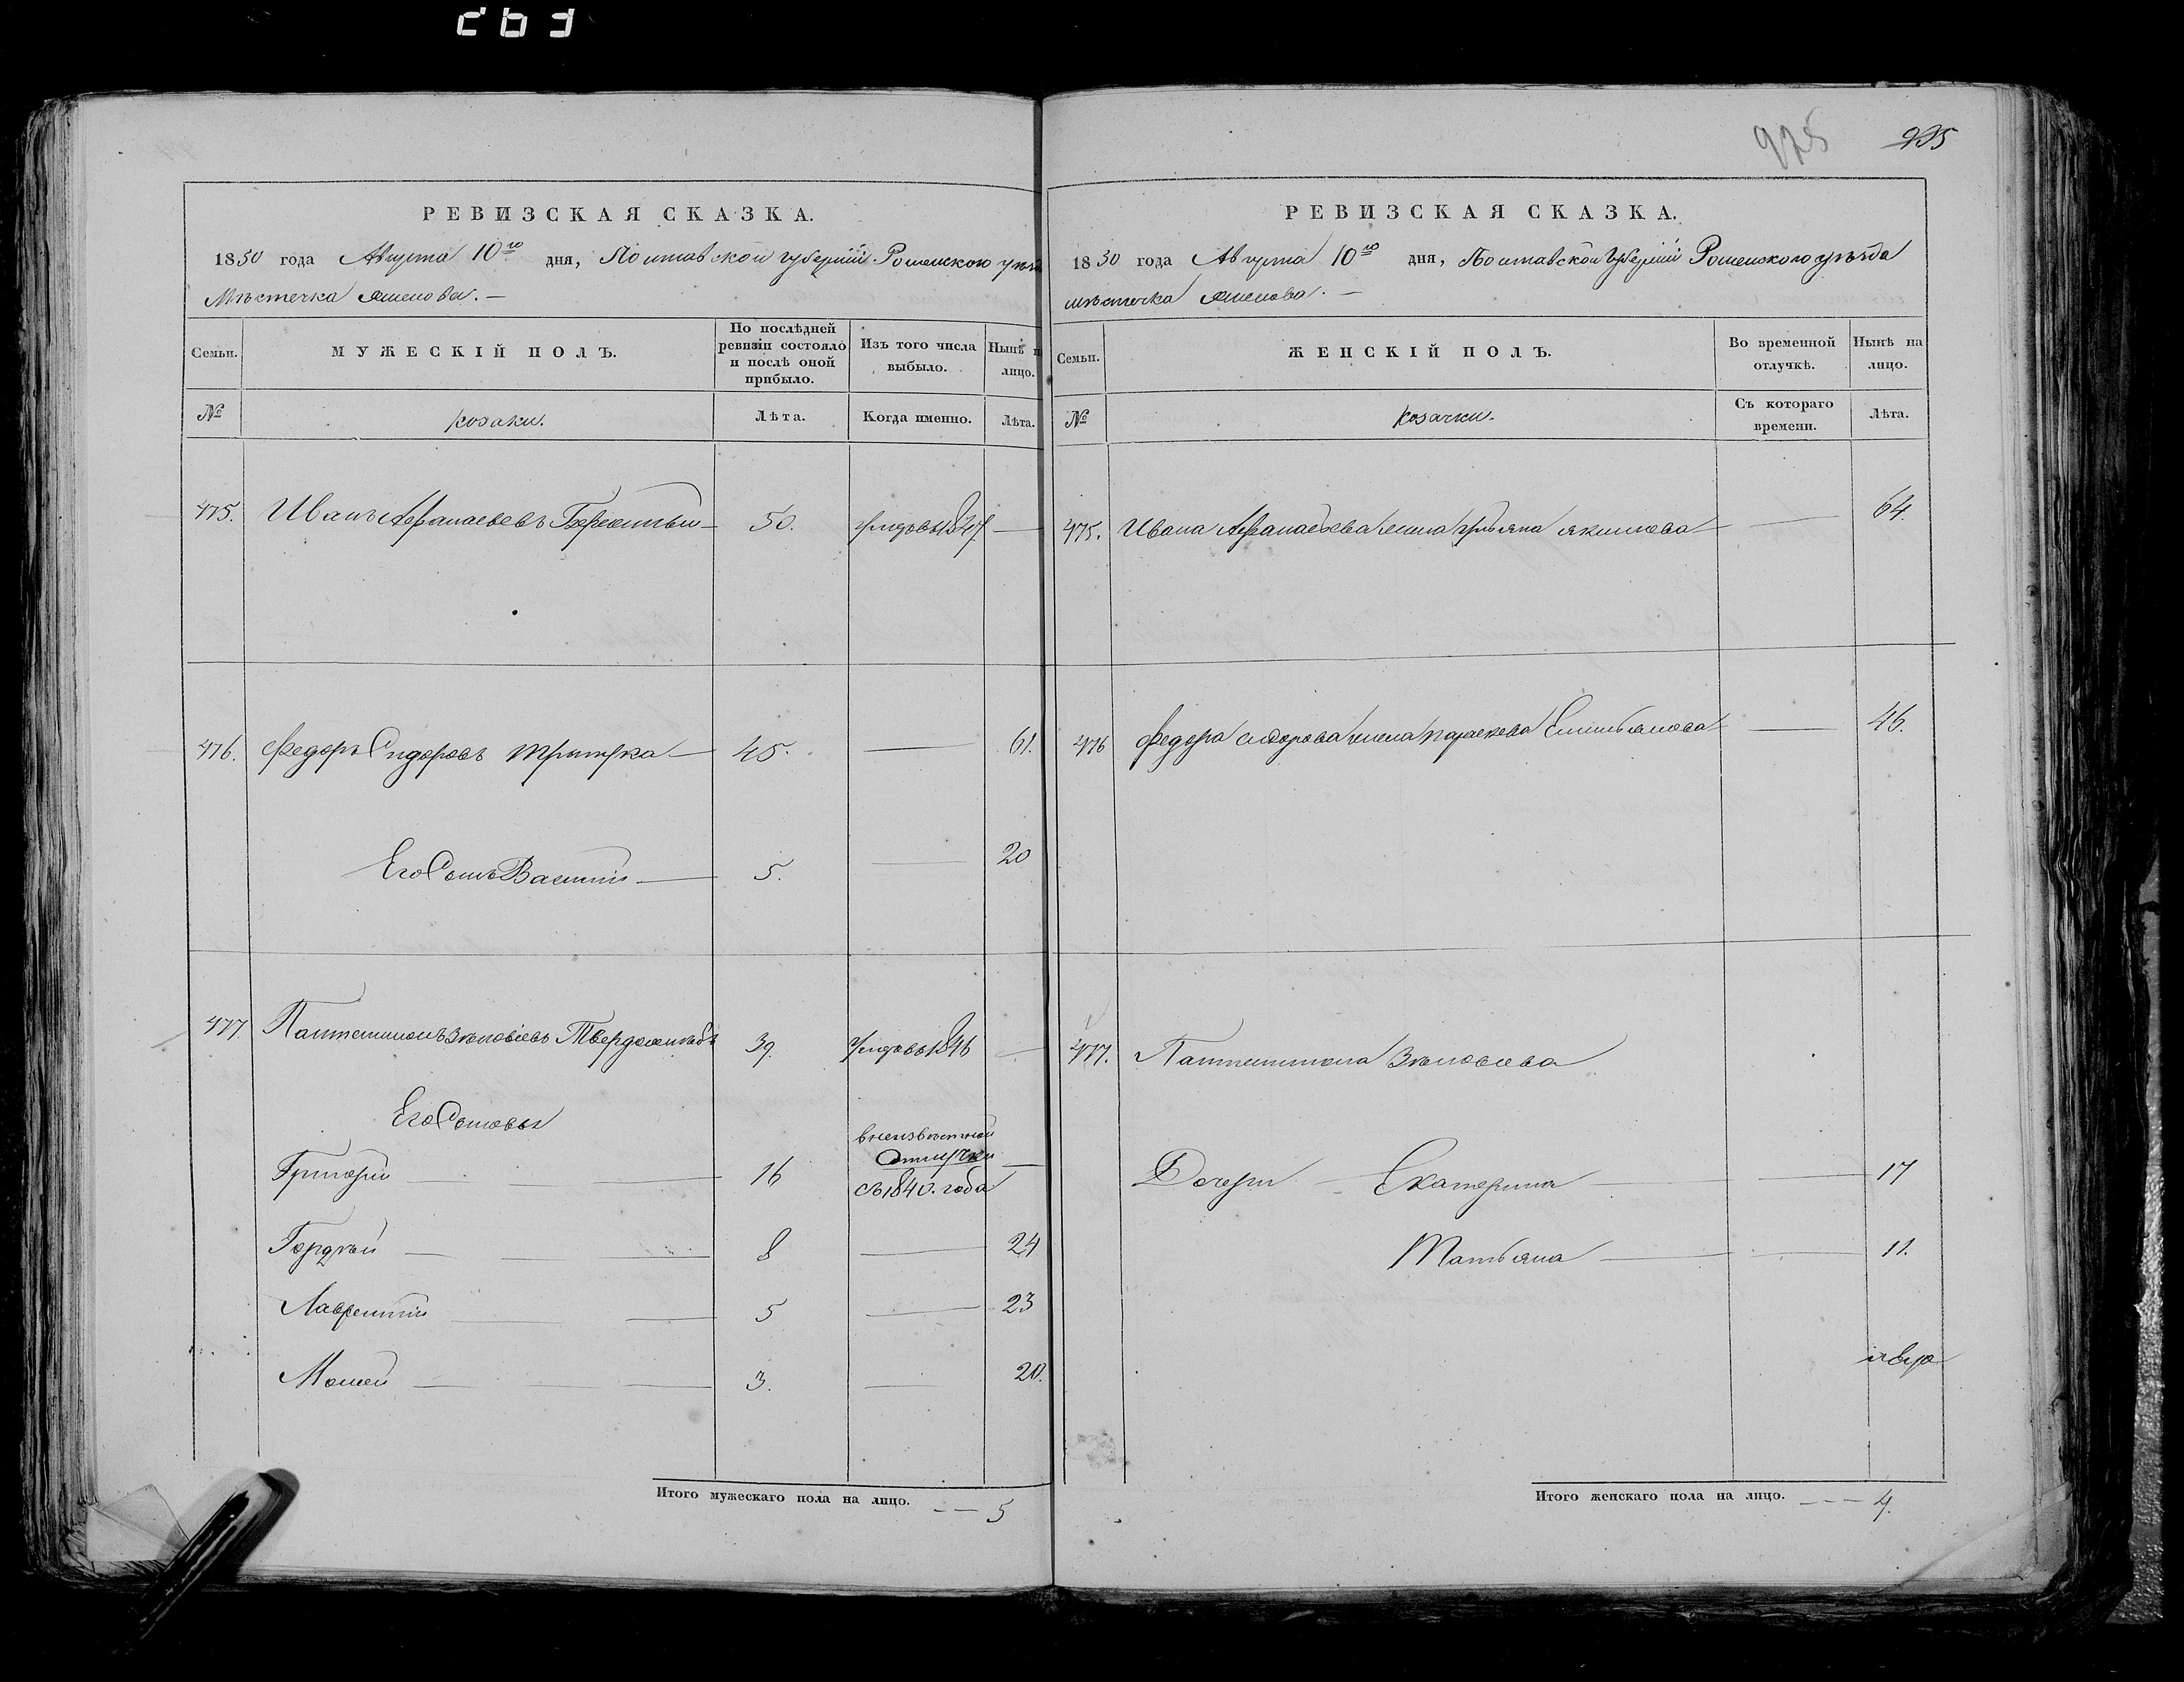 975 935
РЕВИЗСКАЯ СКАЗКА.
1850 года Августа 10го дня, Полтавской губерніи Роменского уѣзда
Мѣстечка Смелова. —
Семьи. МУЖЕСКІЙ ПОЛЪ. По послѣдней ревизіи состояло и послѣ оной прибыло. Изъ того числа выбыло. Нынѣ на лицо.
№ козаки. Лѣта. Когда именно. Лѣта.
475. Иванъ Афанасьевъ 50. умеръ въ 1847 —
476. Федоръ Сидоровъ 45. — 61.
Его Сынъ Василій — 5. — 20
477 Пантелимонъ Зѣновіевъ Твердохлѣбъ 39. Умеръ въ 1846 —
Его Сыновья
Григорій — 16 в неизвѣстной отлучки с 1840. года —
Гордѣй — 8 — 24
Лаврентій — 5 — 23
Мосей — 3. — 20.
Итого мужескаго пола на лицо. — — 5
РЕВИЗСКАЯ СКАЗКА.
1850 года Августа 10го дня, Полтавской Губерніи Роменского уѣзда
мѣстечка Смелова. —
Семьи. ЖЕНСКІЙ ПОЛЪ. Во временной отлучкѣ. Нынѣ на лицо.
№ Козачки. Съ котораго времени. Лѣта.
475. Ивана Афанасьева жена Ульяна Якимова — 64.
476 Федора Сидорова жена Параскева Емильянова — 46.
477. Пантелимона Зѣновіева
Дочери — Екатерина — 17
Татьяна — 11.
Итого женскаго пола на лицо. — — — 4.